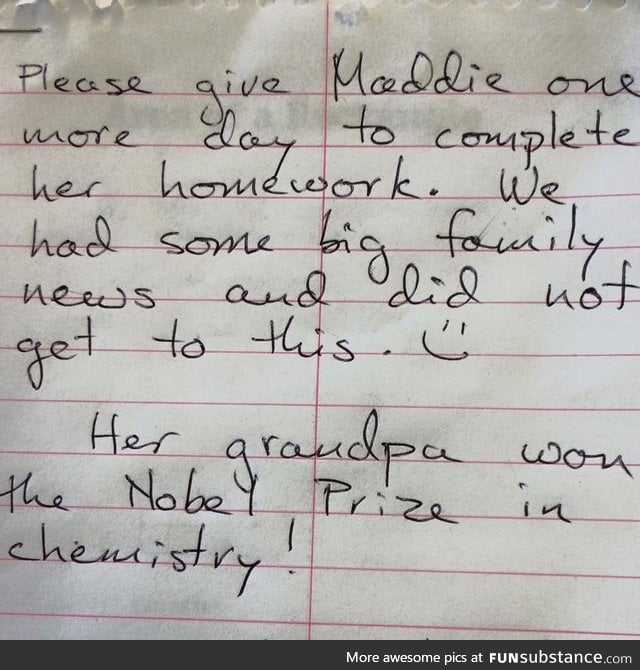 Please give Maddie one
more day to complete
her homework. We
had some big family
news and did not
get to this. :)
Her grandpa won
the Nobel Prize in
chemistry!
More awesome pics at FUNsubstance.com